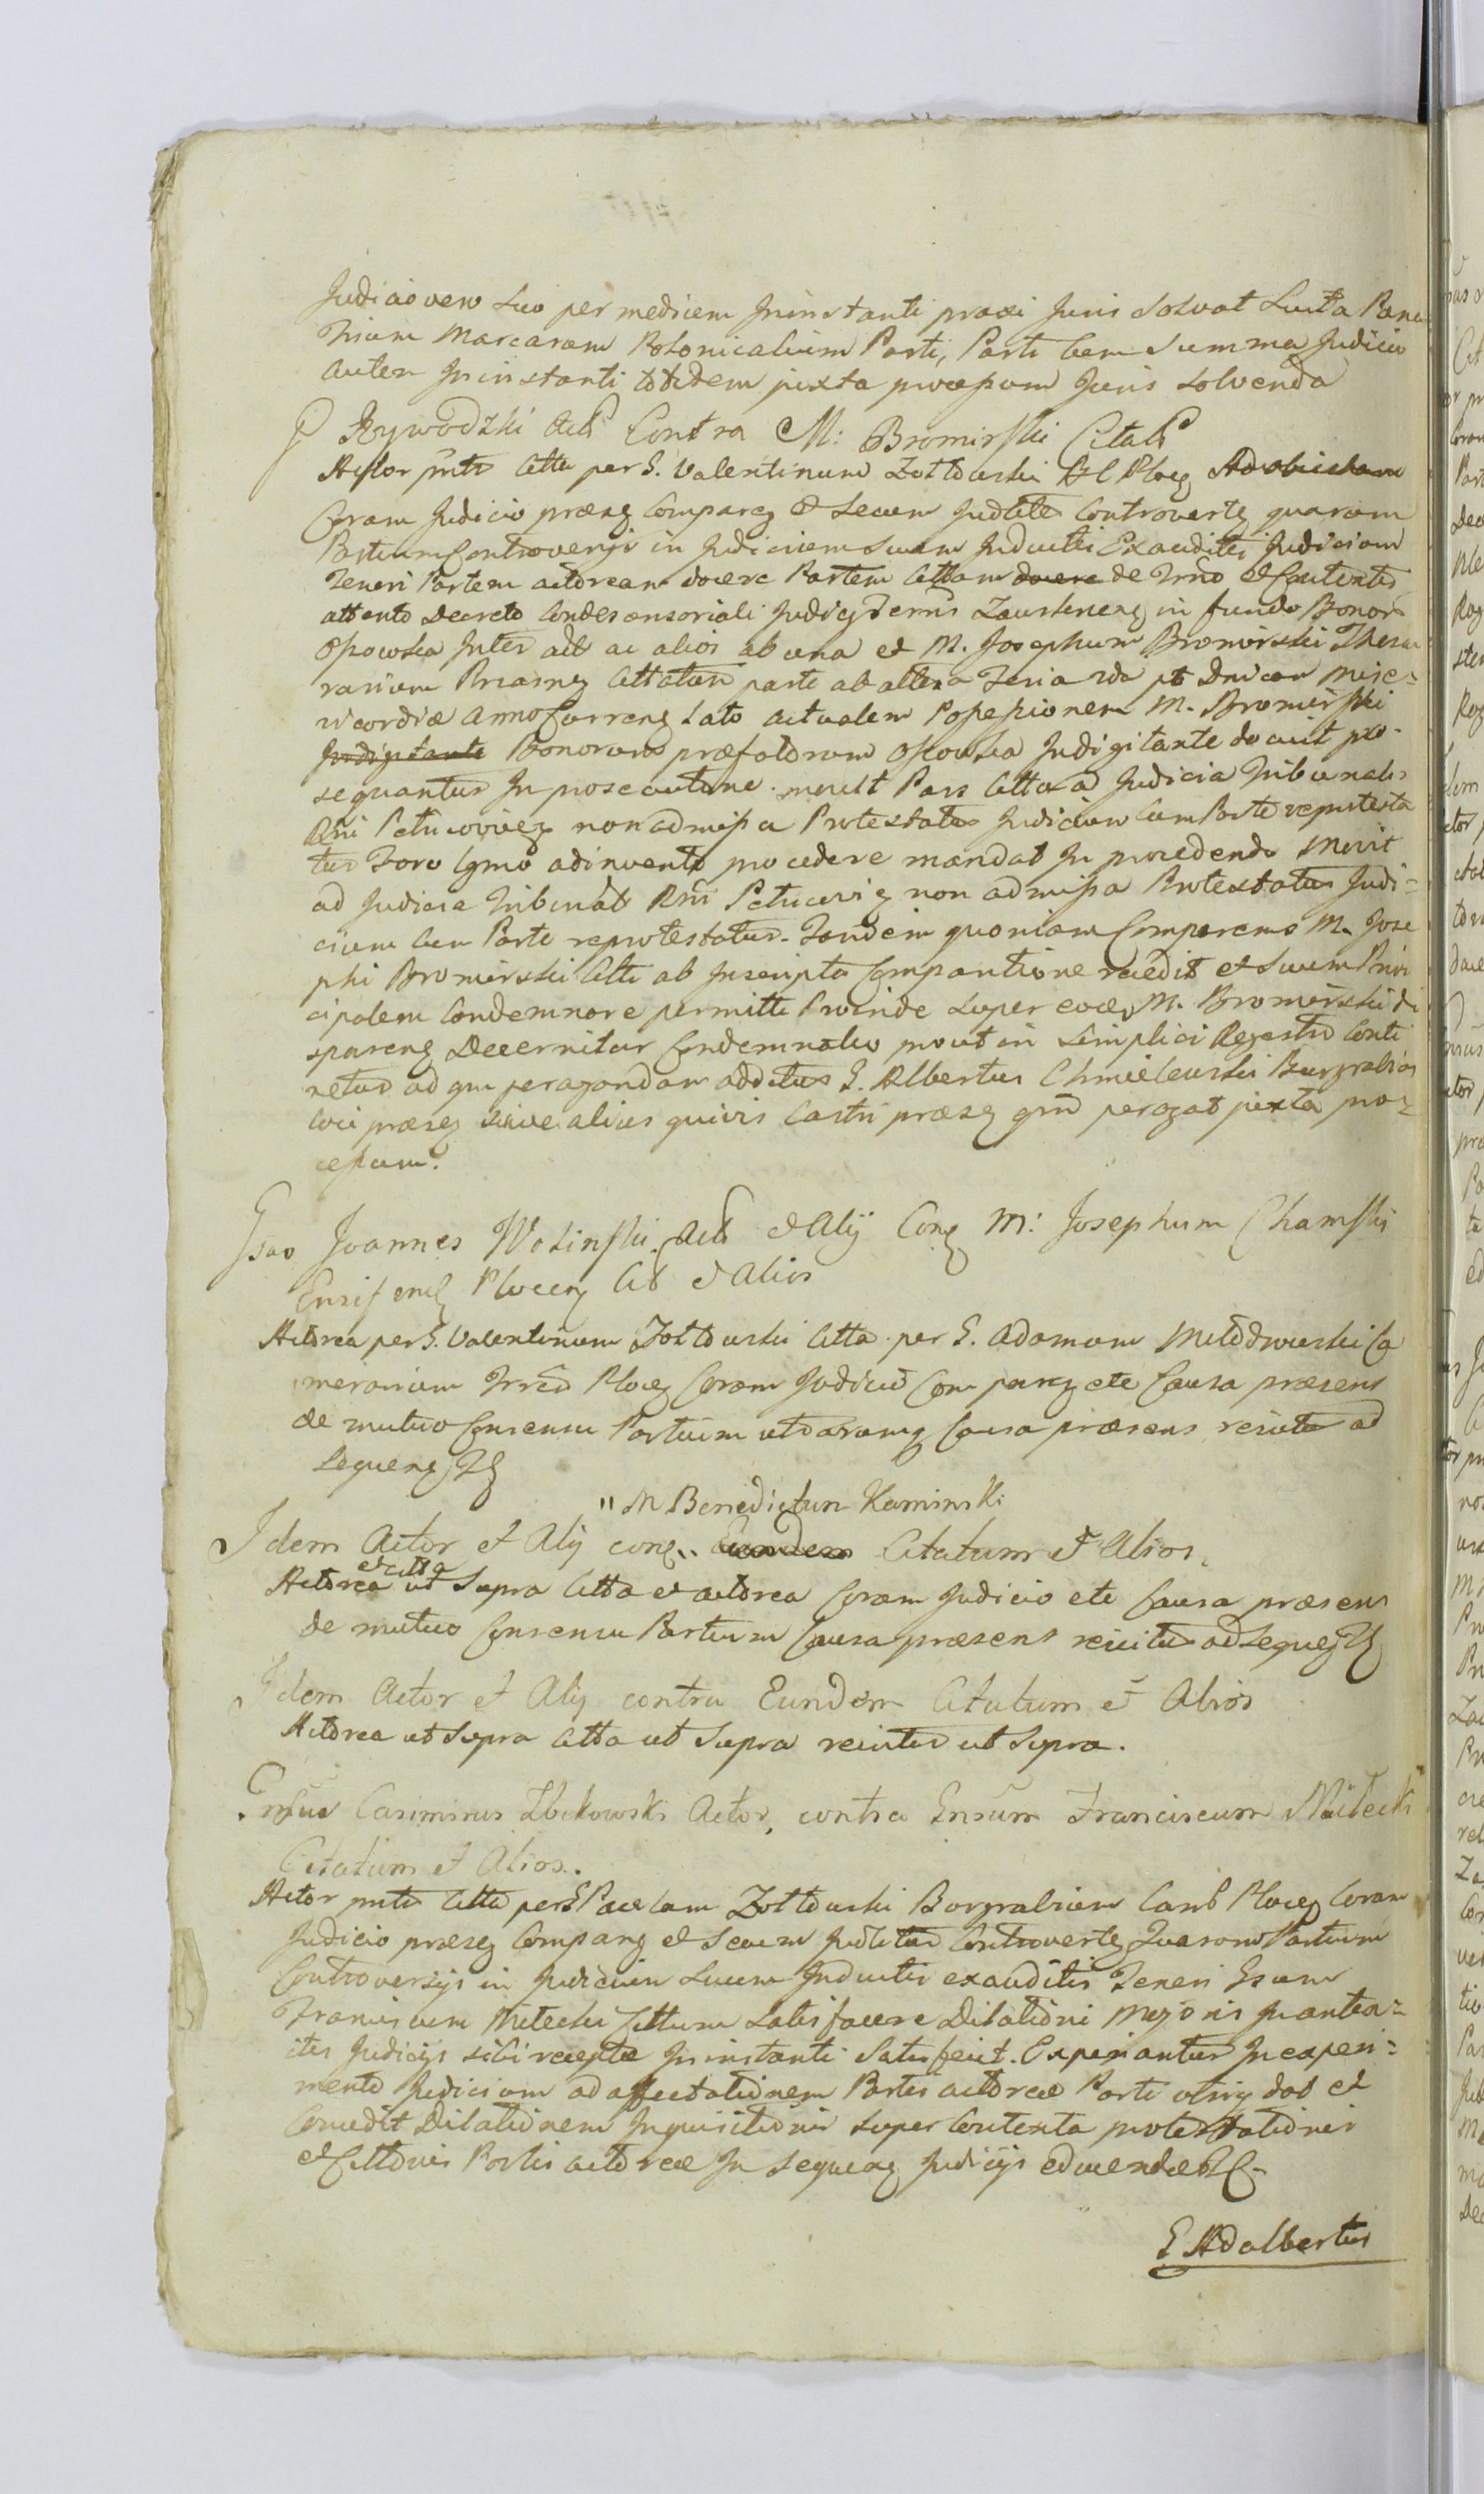 Judicio vero suo per medicem Ininstanti praxi Juris solvat Lucta Pana
Trium Marcarum Polonicalium Parti, Parti Cem Summa Judicio
autem Ininstanti totidem juxta processum Juris solvenda
G Rywodzki Act Contra M: Bromirski Citat
Actor pnts Citta per G. Valentinum Zołtowski Ploc
Coram Judicio præsen Comparen & Secum Judtlte Controverten quarum
Partium Controversji in Judicium Suum Inductis Exauditis Judicium
Teneri Partem actoream docere Partem Cittam docere de Trmo et Contentis
attento Decreto Condescensoriali Judicy Terris Zauskrnen in fundo Bonor
Opowska Inter act ac alios ab una et M. Josephum Bromirski Thesau
rarium Prasney Cittatum parte ab altera Feria 2da pt Dnicam Mise=
ricordiæ Anno Curren Lato actualem Possessionem M. Bromirski
Indigitante Bonorum præfatorum Opowska Indigitante docuit pro-
sequantur In prosecutione movit Pars Citta ad Judicia Tribunalis
Rni Petricovien non admissa Protestatur Judicium Cum Parte reprotesta
tur Foro Igmo adinvento procedere mandat In procedendo Movit
ad Judicia Tribunal Rni Petricovi non admissa Protestatur Judi=
cium Cum Parte reprotestatur. Tandem quoniam Comparens M. Jose
phi Bromirski Citti ab Inscripta Comparitione recedit et Suum Prin
cipalem Condemnare permitti Proinde super eode M. Bromirski di
sparens Decernitur Condemnatio prout in Simplici Regestro Conti
netur ad qm peragendam additus G. Albertus Chmielewski Burgrabius
loci præsen sive alius quivis Castri præsen qm peragat juxta pro=
cessum.
Gsus Joannes Wolinski Act & Alij Con M: Josephum Chamski
Ensiferum Plocen Cit & Alios
Actorea per G. Valentinum Zołtowski Citta per G. Adamum Młodzowski Ca
merarium Trrem Plocen Coram Judicio Comparen ete Causa præsens
de mutuo Consensu Partium utrarumq Causa præsens reiicitur ad
sequens
"M Benedictum Kaminski
Idem Actor et Alij con. Eundem Citatum et Alios.
et citta
Actorea ut Supra Citta et actorea Coram Judicio ete Causa præsens
de mutuo Consensu Partium Causa præsens reiicitur ad sequen
Idem Actor et Alij contra Eundem Citatum et Alios
Actorea ut Supra Citta ut Supra reiicitur ut Supra.
Gnsus Casimirus Zbikowski Actor, contra Gnsum Franciscum Milecki
Citatum et Alios.
Actor pnts Citta per G Paulum Zołtowski Burgrabium Castr Plocen Coram
Judicio præsen Comparen et Secum Judtltes Controverten Quarum Partium
Controversijs in Judicium Suum Inductis exauditis Teneri Gsum
Franciscum Milecki Cittum Satisfacere Dilationi Majoris In antea=
ctis Judicijs sibi receptæ Ininstanti Satisfecit. Experiantur In experi=
mento Judicium ad affectationem Partis actoreæ Parti utriq dat et
Concedit Dilationem Inquisitionis super Contenta protestationis
et Cittonis Partis actoreæ In sequen Judicijs educendæ
G Adalbertus